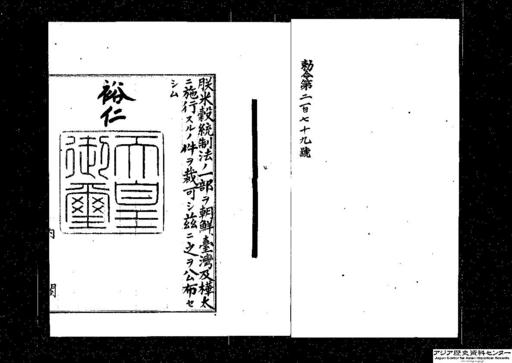 勅令第二百七十九號
朕米穀統制法ノ一部ヲ朝鮮臺灣及樺太
ニ施行スルノ件ヲ裁可シ茲ニ之ヲ公布セ
シム
裕仁
天皇
御璽
内閣
アジア歴史資料センター
Japan Center for Asian Historical Records